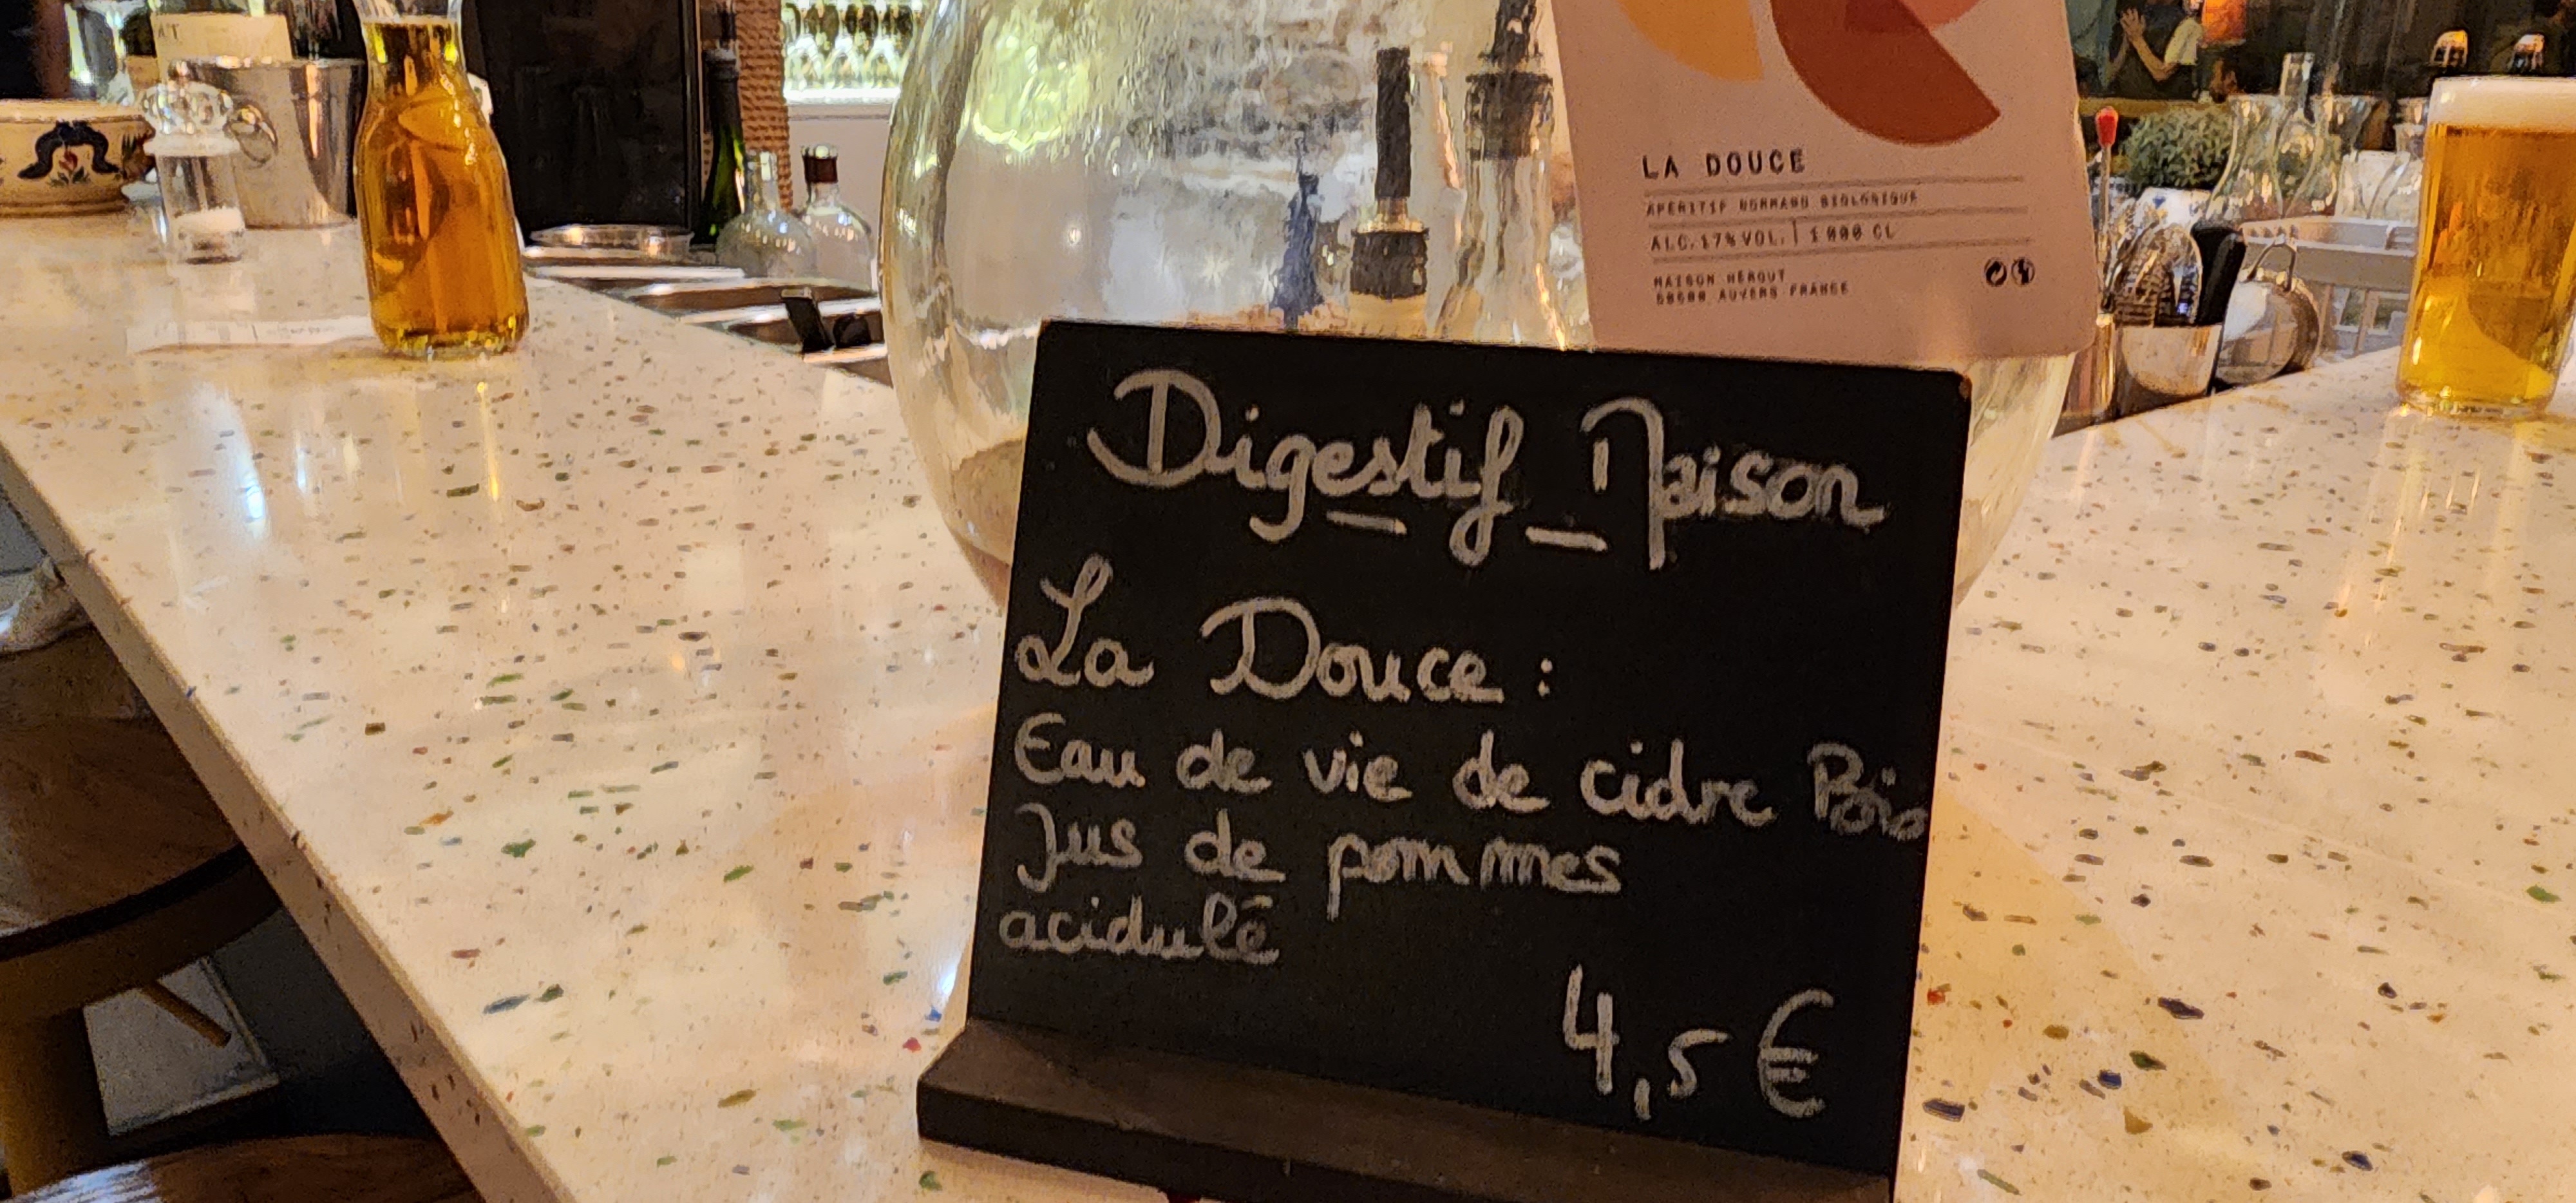 LA DOUCE
APÉRITIF NORMAND BIOLOGIQUE
ALC. 17% VOL. | 1000 CL
MAISON HÉROUT
AUVERS FRANCE
Digestif Maison
La Douce :
Eau de vie de cidre Bio
Jus de pommes
acidulé
4,5 €